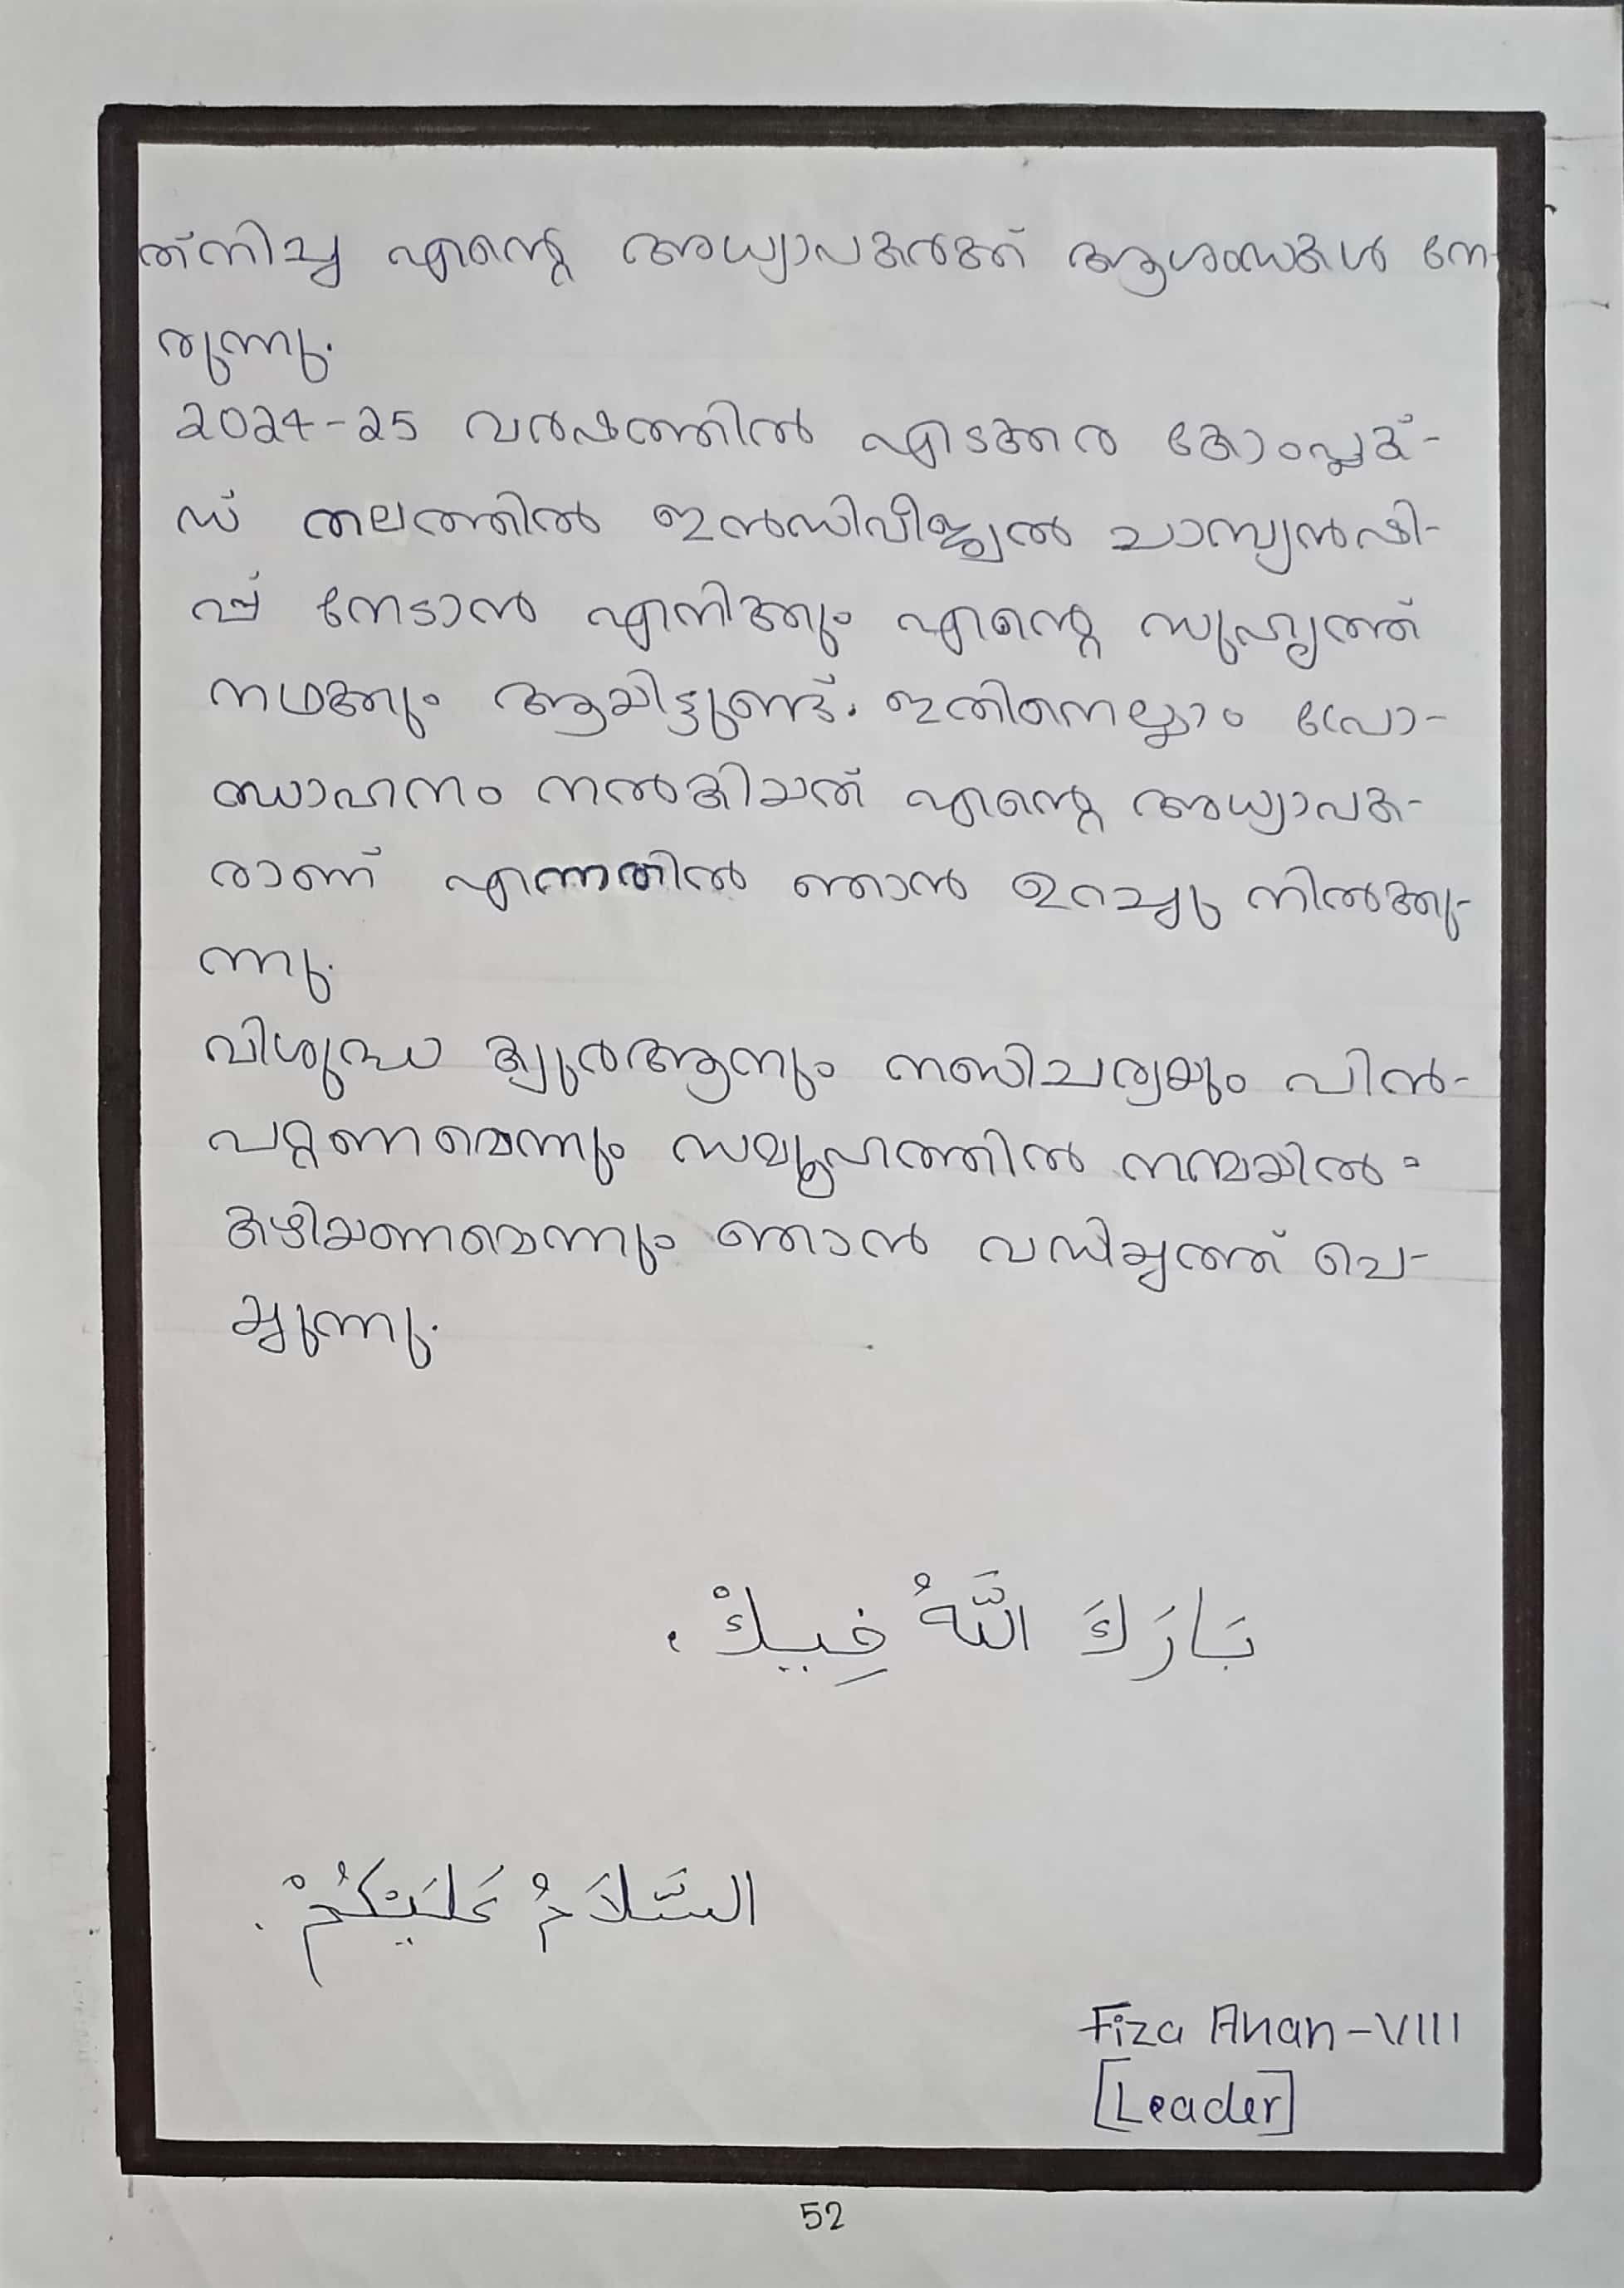 ത്നിച്ച എന്റെ അധ്യാപകർക്ക് ആശംസകൾ നേ-
രുന്നു.
2024-25 വർഷത്തിൽ എടക്കര കോംപ്ലക്-
സ് തലത്തിൽ ഇൻഡിവീജ്വൽ ചാമ്പ്യൻഷി-
പ്പ് നേടാൻ എനിക്കും എന്റെ സുഹൃത്ത്
നഥക്കും ആയിട്ടുണ്ട്. ഇതിനെല്ലാം പ്രോ-
ത്സാഹനം നൽകിയത് എന്റെ അധ്യാപക-
രാണ് എന്നതിൽ ഞാൻ ഉറച്ചു നിൽക്കു-
ന്നു.
വിശുദ്ധ ഖുർആനും നബിചര്യയും പിൻ-
പറ്റണമെന്നും സമൂഹത്തിൽ നന്മയിൽ -
കഴിയണമെന്നും ഞാൻ വസിയ്യത്ത് ചെ-
യ്യുന്നു.
بَارَكَ اللَّهُ فِيكْ.
السَّلَامُ عَلَيْكُمْ.
Fiza Ahan-VIII
[Leader]
52